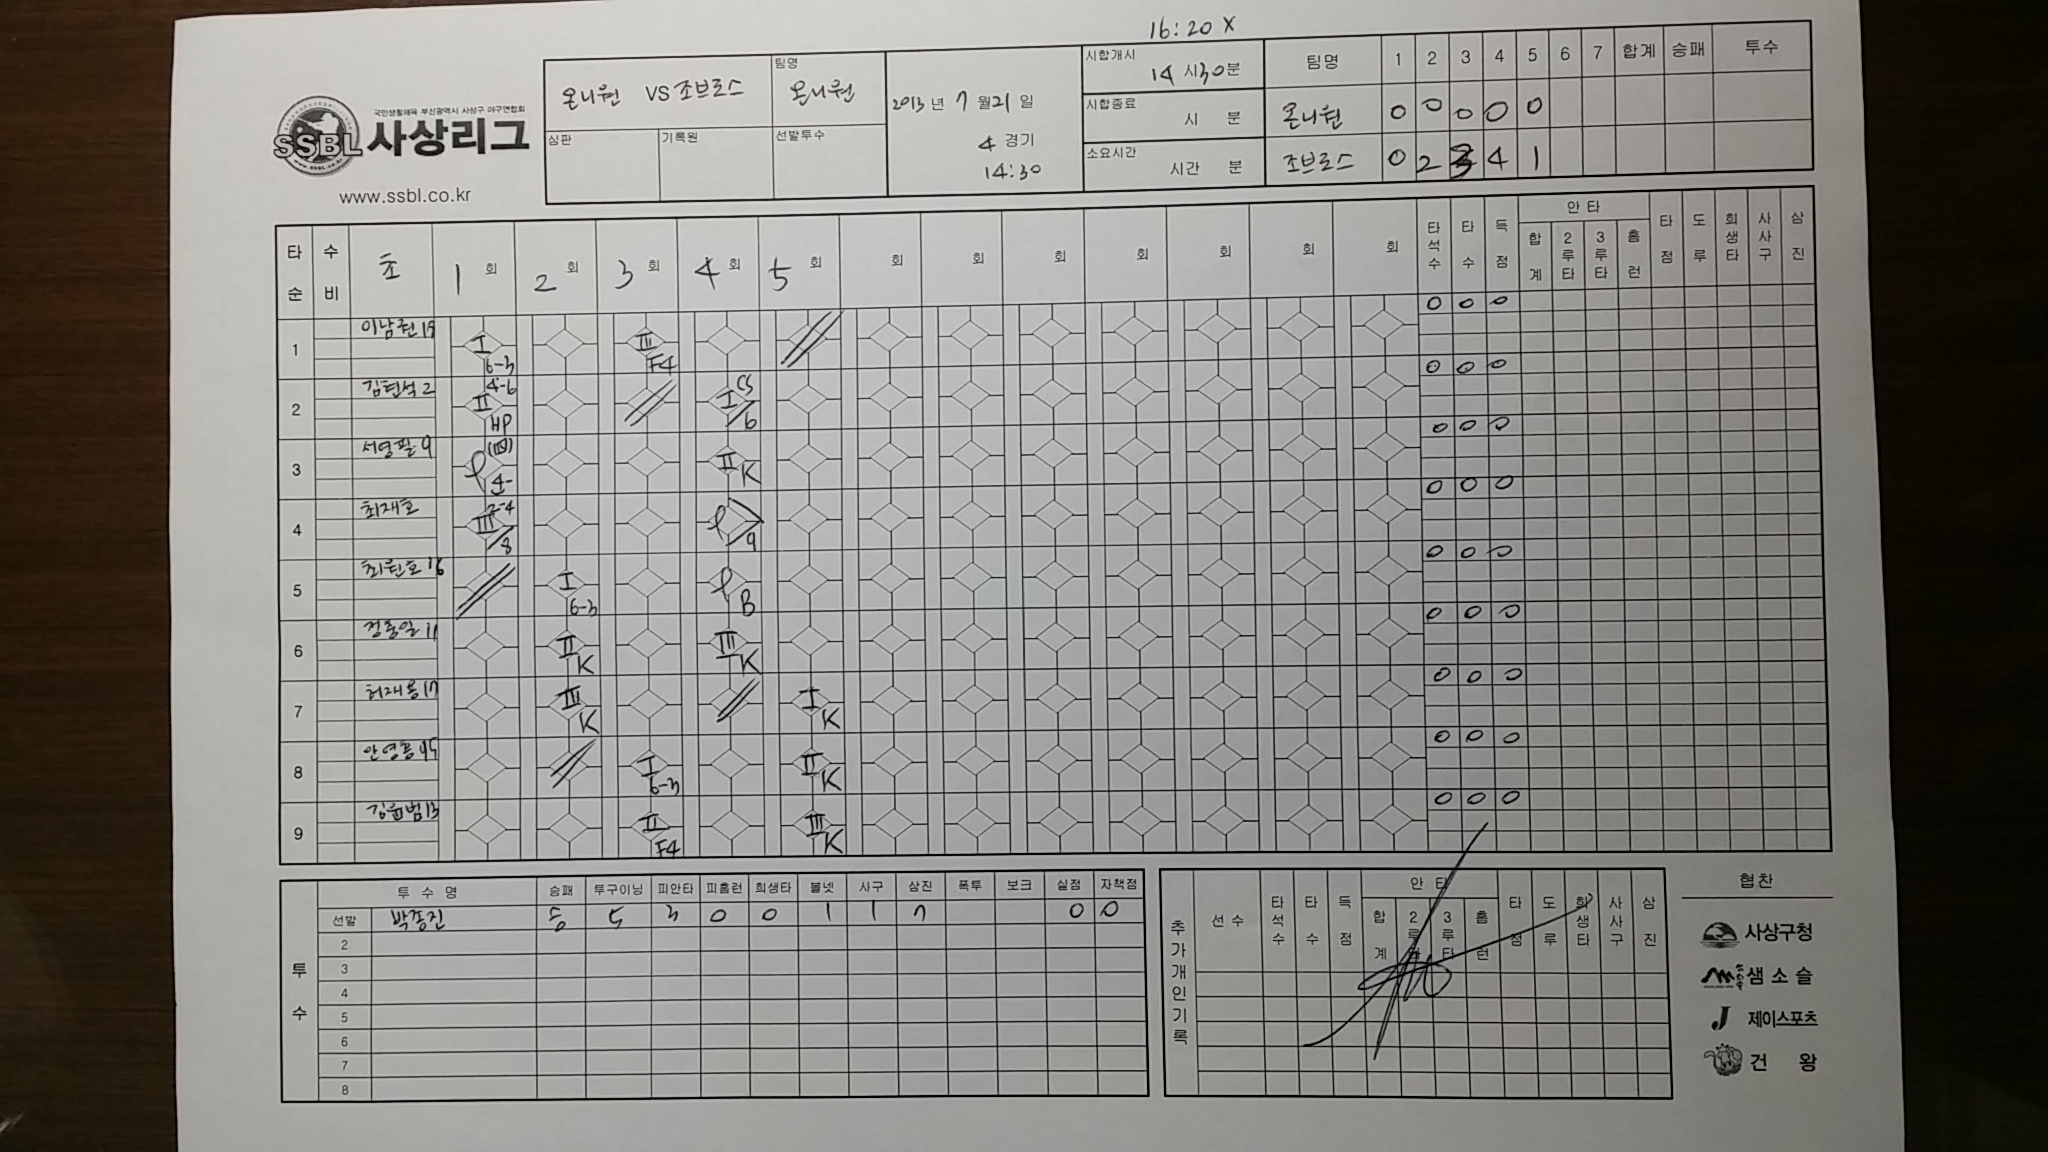 16:20 X
온니원 VS 조브로스
팀명
온니원
2013 년 7 월 21 일
4 경기
14:30
심판
기록원
선발투수
시합개시
14 시 30 분
시합종료
시 분
소요시간
시간 분
팀명 1 2 3 4 5 6 7 합계 승패 투수
온니원 0 0 0 0 0
조브로스 0 2 3 4 1
국민생활체육 부산광역시 사상구 야구연합회
SSBL 사상리그
www.ssbl.co.kr
타순 수비 초 1 회 2 회 3 회 4 회 5 회 회 회 회 회 회 회 회 타석수 타수 득점 안타 타점 도루 희생타 사사구 삼진
합계 2루타 3루타 홈런
1 이남권 19 I 6-3 III F4 0 0 0
2 김현석 2 II 4-6 HP I CS /6 0 0 0
3 서영필 9 4- II K 0 0 0
4 최재호 III 2-4 /8 /9 0 0 0
5 최원호 16 I 6-3 B 0 0 0
6 정동일 11 II K III K 0 0 0
7 허재용 17 III K I K 0 0 0
8 안영룡 45 I 6-3 II K 0 0 0
9 김윤범 13 II F4 III K 0 0 0
투수
투수명 승패 투구이닝 피안타 피홈런 희생타 볼넷 사구 삼진 폭투 보크 실점 자책점
선발 박종진 승 5 3 0 0 1 1 7 0 0
2
3
4
5
6
7
8
추가개인기록
선수 타석수 타수 득점 안타 타점 도루 희생타 사사구 삼진
합계 2루타 3루타 홈런
협찬
사상구청
샘소슬
J 제이스포츠
건왕